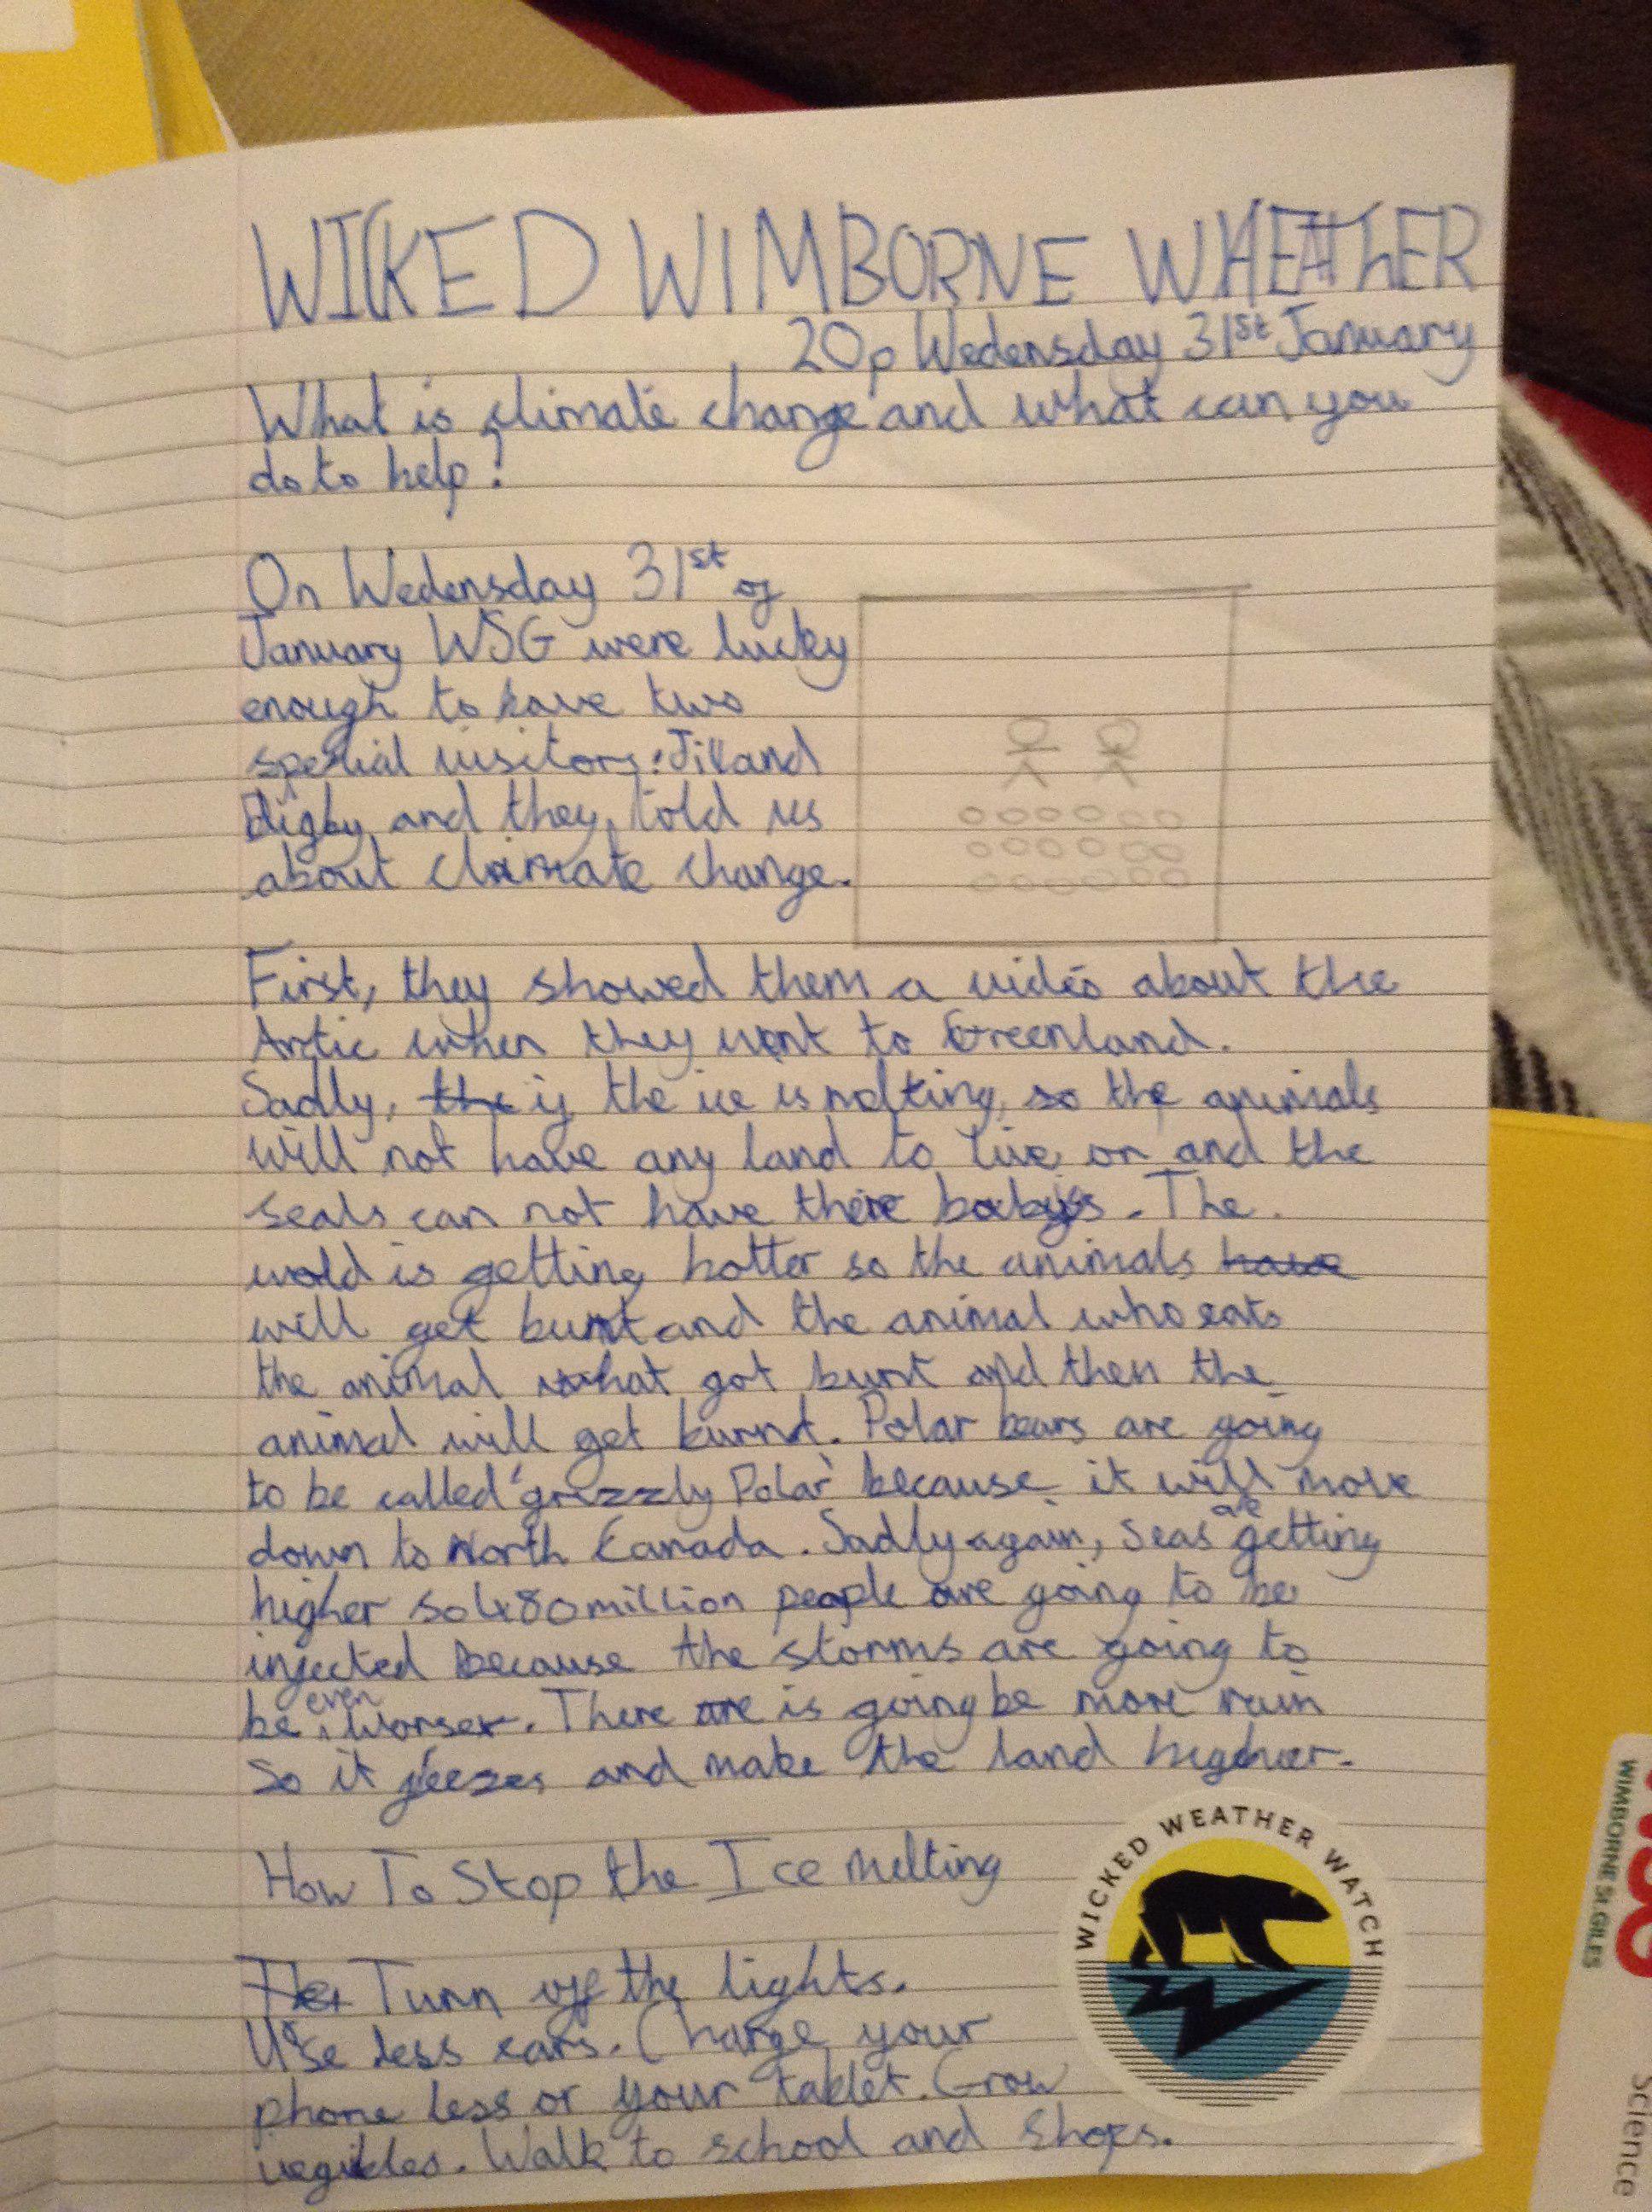 WICKED WIMBORNE WHEATHER
20p Wedensday 31st January
What is climate change and what can you
do to help?
On Wedensday 31st of
January WSG were lucky
enough to have two
special visitors: Jill and
Digby and they told us
about climate change.
First, they showed them a video about the
Artic when they went to Greenland.
Sadly, the if the ice is melting, so the animals
will not have any land to live on and the
seals can not have there babys. The
wold is getting hotter so the animals have
will get burnt and the animal who eats
the animal what got burt and then the
animal will get burnt. Polar bears are going
to be called 'grizzly Polar' because it will move
down to North Canada. Sadly again, seas are getting
higher so 480 million people are going to be
injected because the storms are going to
be even worser. There are is going be more rain
so it feezes and make the land higher.
How To Stop the Ice melting
Turn off the lights.
Use less cars. Charge your
phone less or your tablet. Grow
Walk to school and shops.
WICKED WEATHER WATCH
WSG
WIMBORNE St. GILES
Science